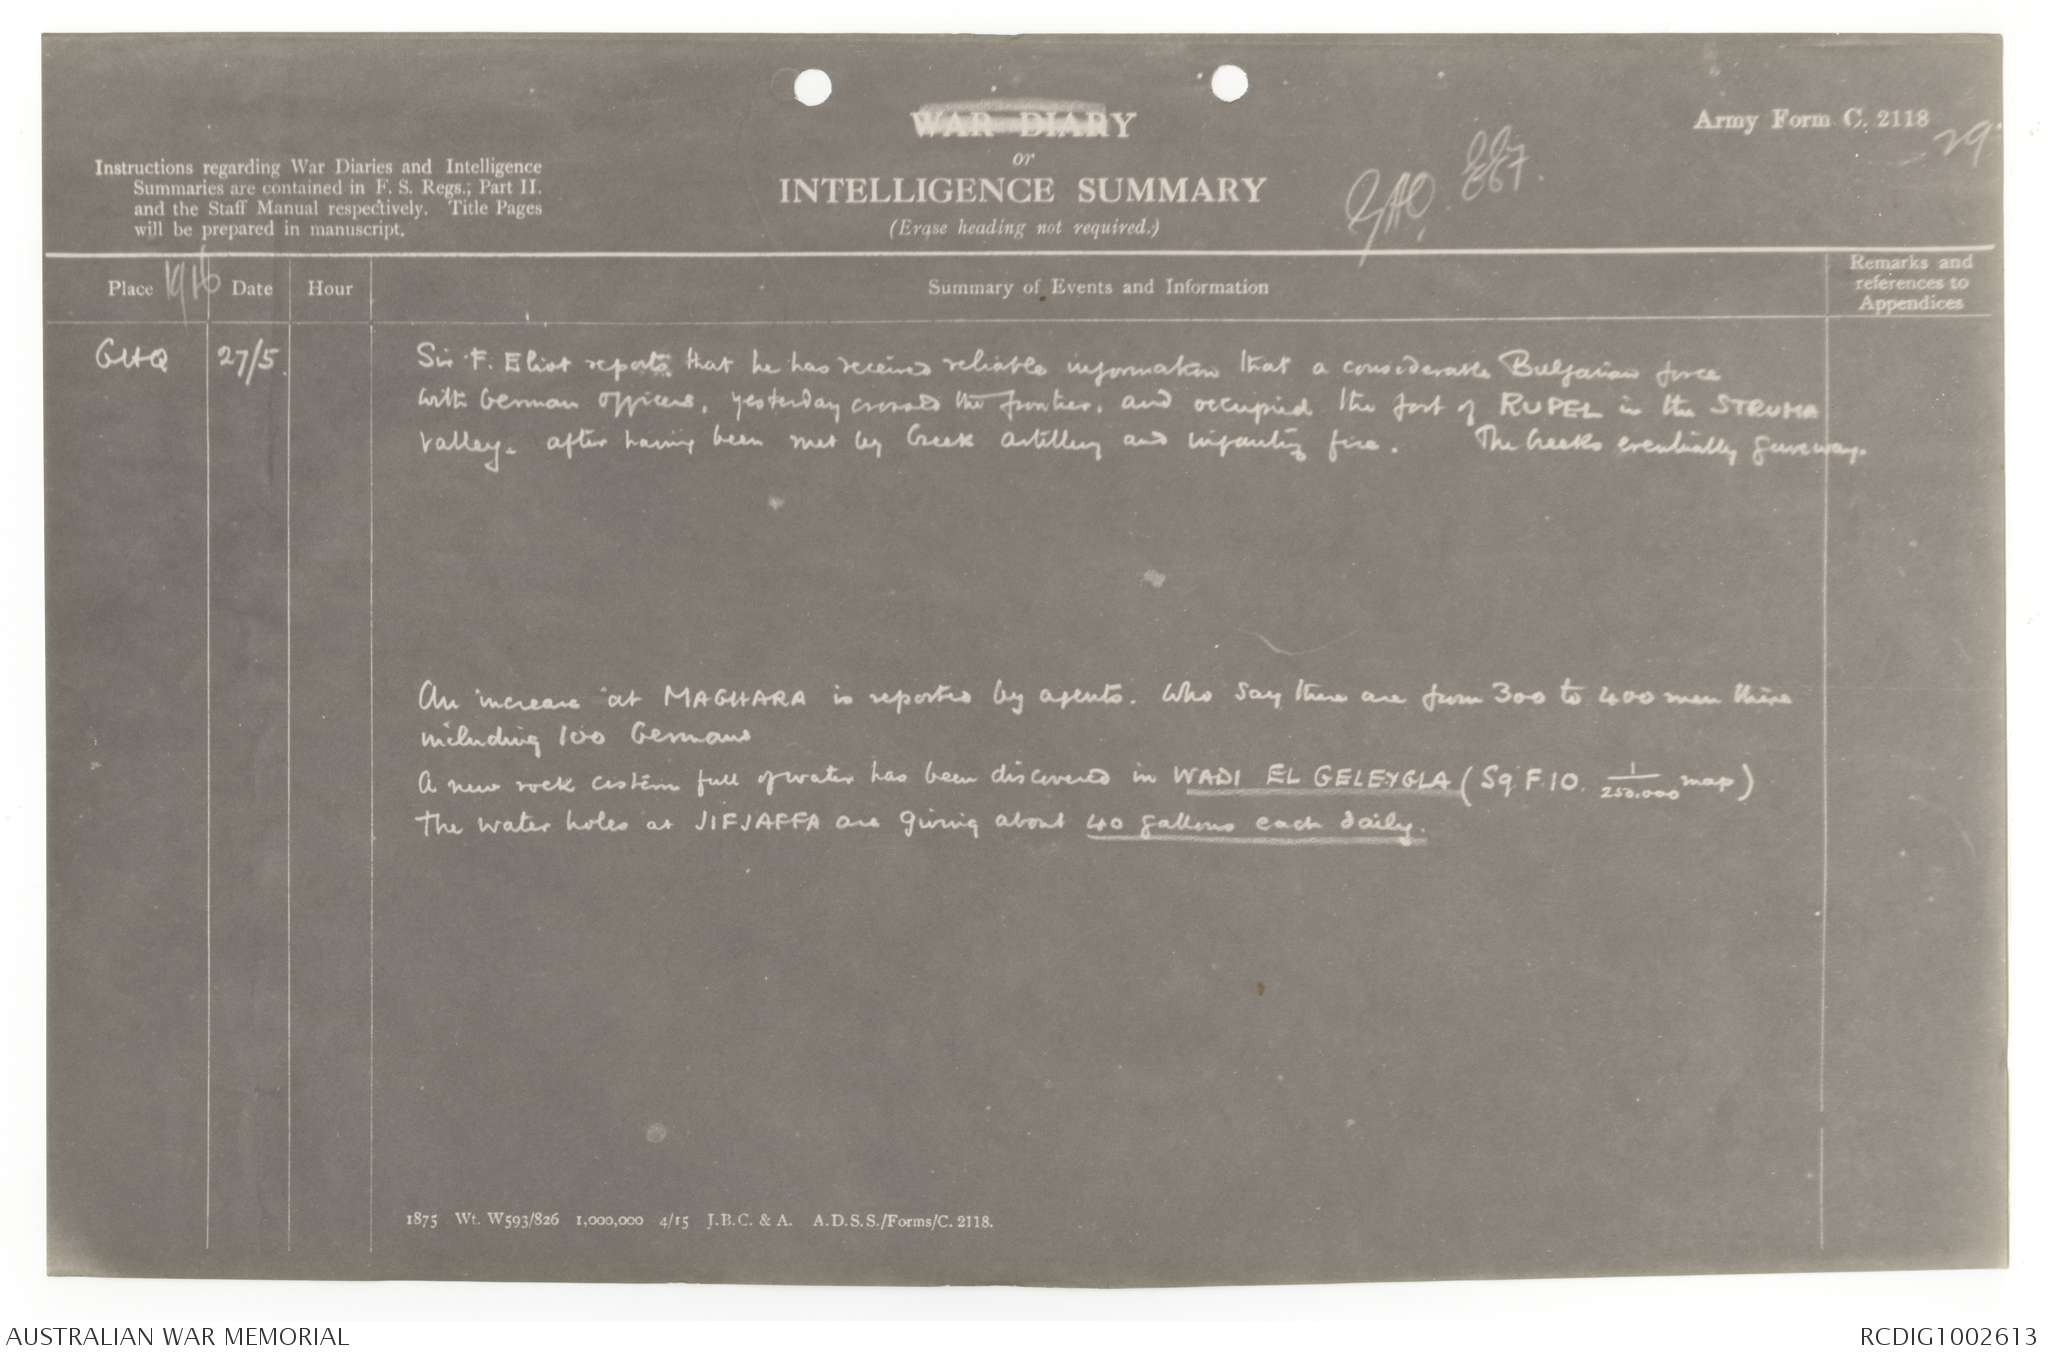 WAR DIARY
or
INTELLIGENCE SUMMARY
(Erase heading not required.)
Army Form C. 2118
29.
Instructions regarding War Diaries and Intelligence
Summaries are contained in F. S. Regs., Part II.
and the Staff Manual respectively. Title Pages
will be prepared in manuscript.
Place 1916 Date Hour Summary of Events and Information Remarks and
references to
Appendices
GHQ 27/5. Sir F. Eliot reports that he has received reliable information that a considerable Bulgarian force
with German officers, yesterday crossed the frontier, and occupied the fort of RUPEL in the STRUMA
valley. after having been met by Greek artillery and infantry fire. The Greeks eventually gave way.
An increase at MAGHARA is reported by agents. Who say there are from 300 to 400 men there
including 100 Germans
A new rock cistern full of water has been discovered in WADI EL GELEYGLA (Sq F.10. 1/250.000 map)
The water holes at JIFJAFFA are giving about 40 gallons each daily.
1875 Wt. W593/826 1,000,000 4/15 J.B.C. & A. A.D.S.S./Forms/C. 2118.
AUSTRALIAN WAR MEMORIAL
RCDIG1002613